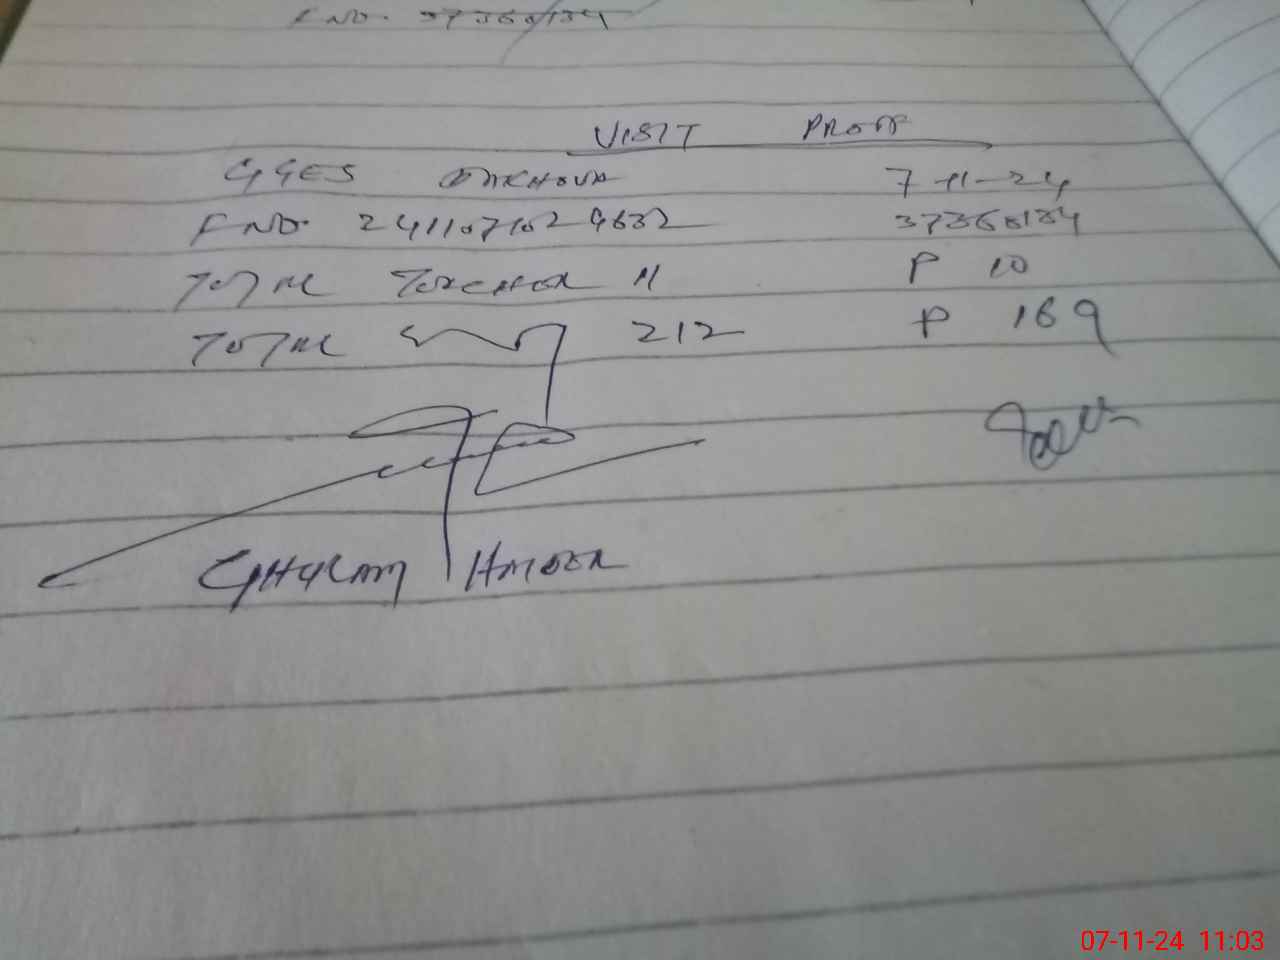 F NO. 37360184
VISIT PROOF
GGES 7-11-24
F NO. 2411071029632 37360184
TOTAL TEACHER 11 P 10
TOTAL 212 P 169
GHULAM HAIDER
07-11-24 11:03